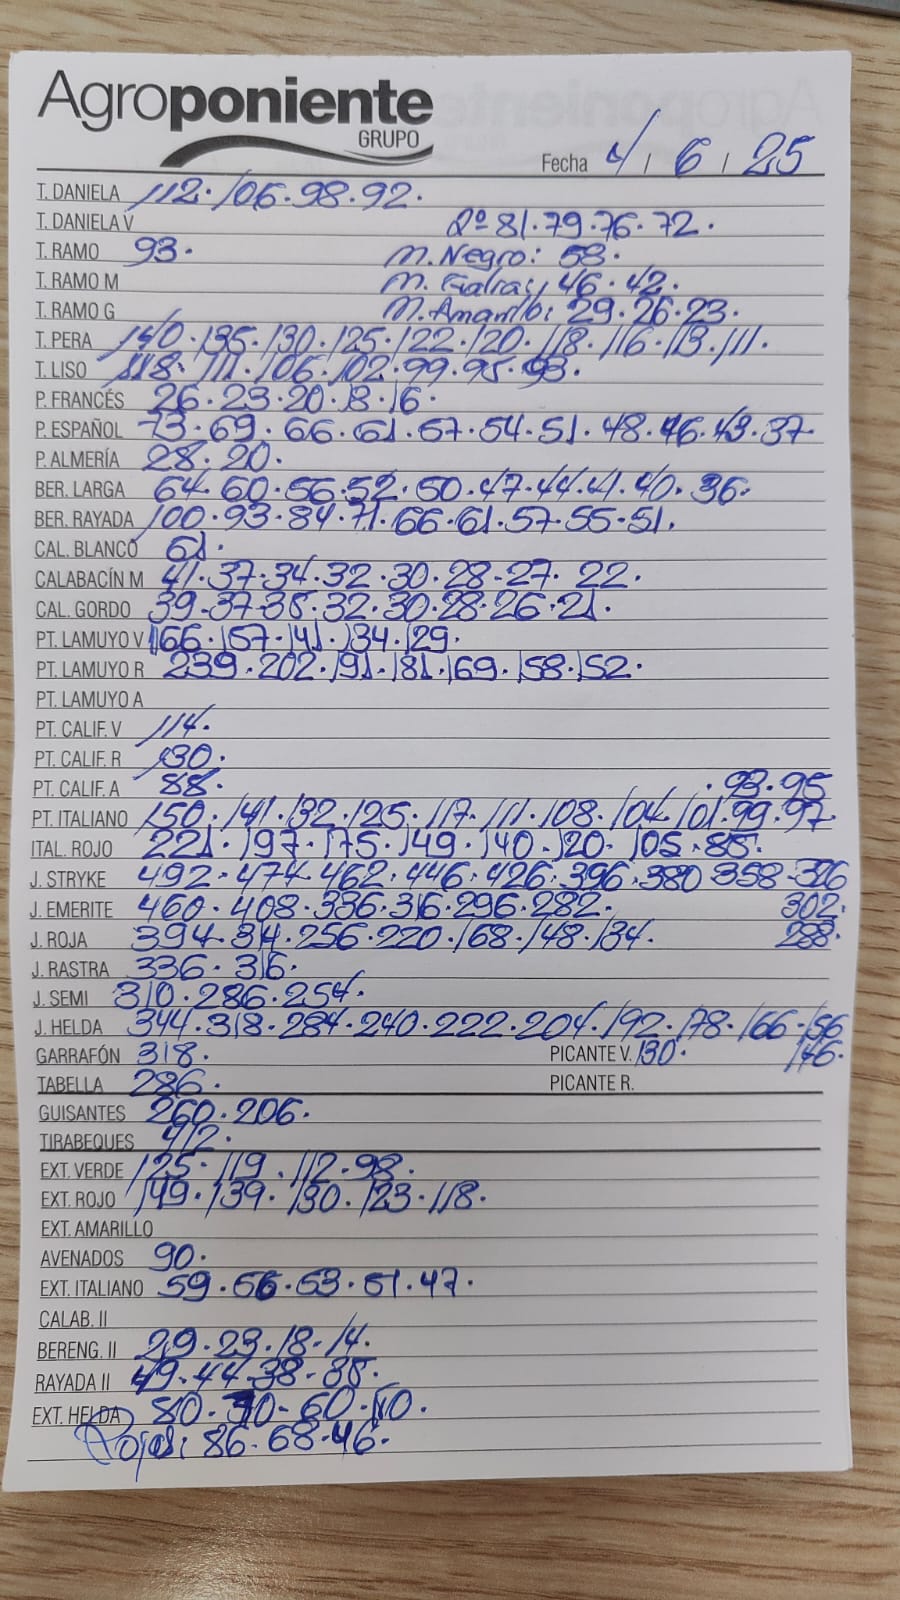 Agroponiente
GRUPO
Fecha 4 / 6 / 25
T. DANIELA 112. 106. 98. 92.
T. DANIELA V 2ª 81. 79. 76. 72.
T. RAMO 93. M. Negro: 58.
T. RAMO M M. 46. 42.
T. RAMO G M. Amarillo: 29. 26. 23.
T. PERA 140. 135. 130. 125. 122. 120. 118. 116. 113. 111.
T. LISO 118. 111. 106. 102. 99. 95. 93.
P. FRANCÉS 26. 23. 20. 18. 16.
P. ESPAÑOL 73. 69. 66. 61. 57. 54. 51. 48. 46. 43. 37.
P. ALMERÍA 28. 20.
BER. LARGA 64. 60. 56. 52. 50. 47. 44. 41. 40. 36.
BER. RAYADA 100. 93. 84. 71. 66. 61. 57. 55. 51.
CAL. BLANCO 61.
CALABACÍN M 41. 37. 34. 32. 30. 28. 27. 22.
CAL. GORDO 39. 37. 35. 32. 30. 28. 26. 21.
PT. LAMUYO V 166. 157. 141. 134. 129.
PT. LAMUYO R 239. 202. 191. 181. 169. 158. 152.
PT. LAMUYO A
PT. CALIF. V 114.
PT. CALIF. R 130.
PT. CALIF. A 88. . 93. 95
PT. ITALIANO 150. 141. 132. 125. 117. 111. 108. 104. 101. 99. 97.
ITAL. ROJO 221. 197. 175. 149. 140. 120. 105. 85.
J. STRYKE 492. 474. 462. 446. 426. 396. 380 358 326
J. EMERITE 460. 408. 336. 316. 296. 282. 302.
J. ROJA 394. 314. 256. 220. 168. 148. 134. 288.
J. RASTRA 336. 316.
J. SEMI 310. 286. 254.
J. HELDA 344. 318. 284. 240. 222. 204. 192. 178. 166. 156
GARRAFÓN 318. PICANTE V. 130. 146.
TABELLA 286. PICANTE R.
GUISANTES 260. 206.
TIRABEQUES 412.
EXT. VERDE 125. 119. 112. 98.
EXT. ROJO 149. 139. 130. 123. 118.
EXT. AMARILLO
AVENADOS 90.
EXT. ITALIANO 59. 56. 53. 51. 47.
CALAB. II
BERENG. II 29. 23. 18. 14.
RAYADA II 49. 44. 38. 35.
EXT. HELDA 80. 70- 60.
Rojos: 86. 68. 46.